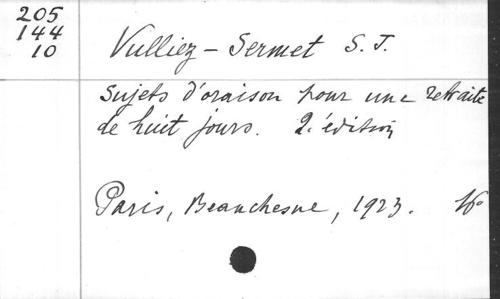 205
144
10
Vulliez-Sermet S. J.
Sujets d'oraison pour une retraite
de huit jours. 2.e édition
Paris, Beauchesne, 1923. 16º